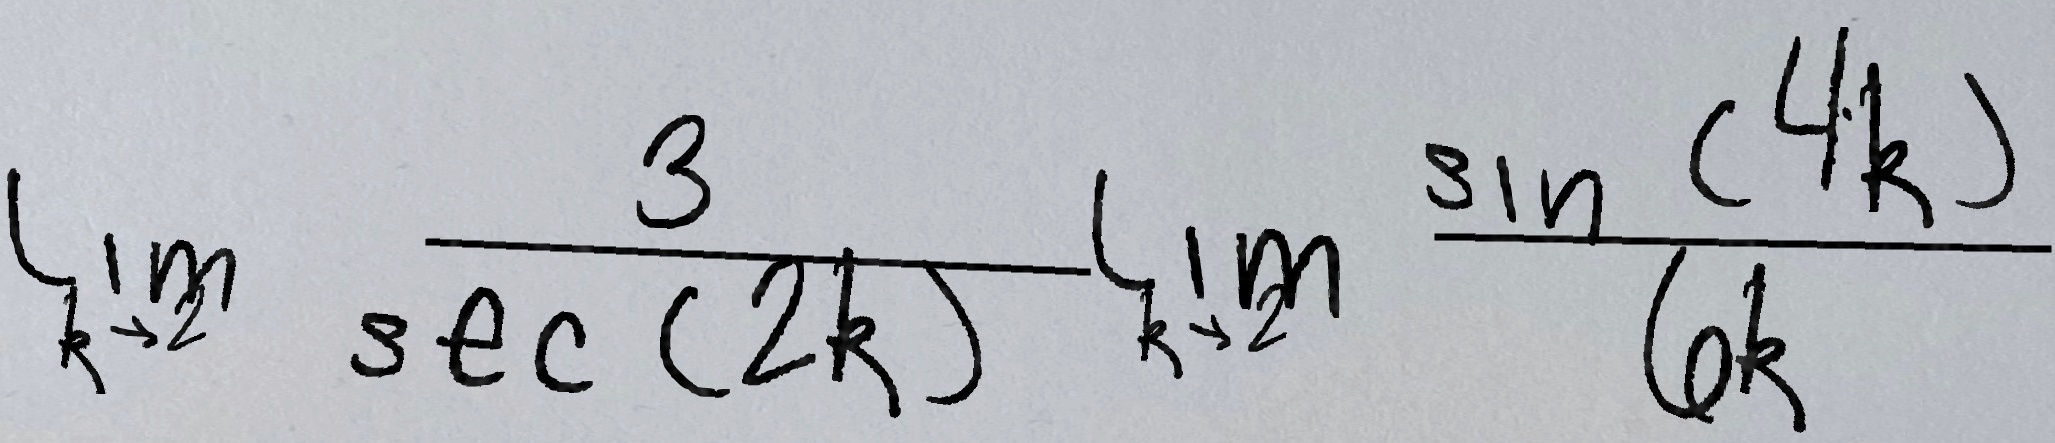 \lim_{k \to 2} \frac{3}{\sec(2k)} \lim_{k \to 2} \frac{\sin(4k)}{6k}